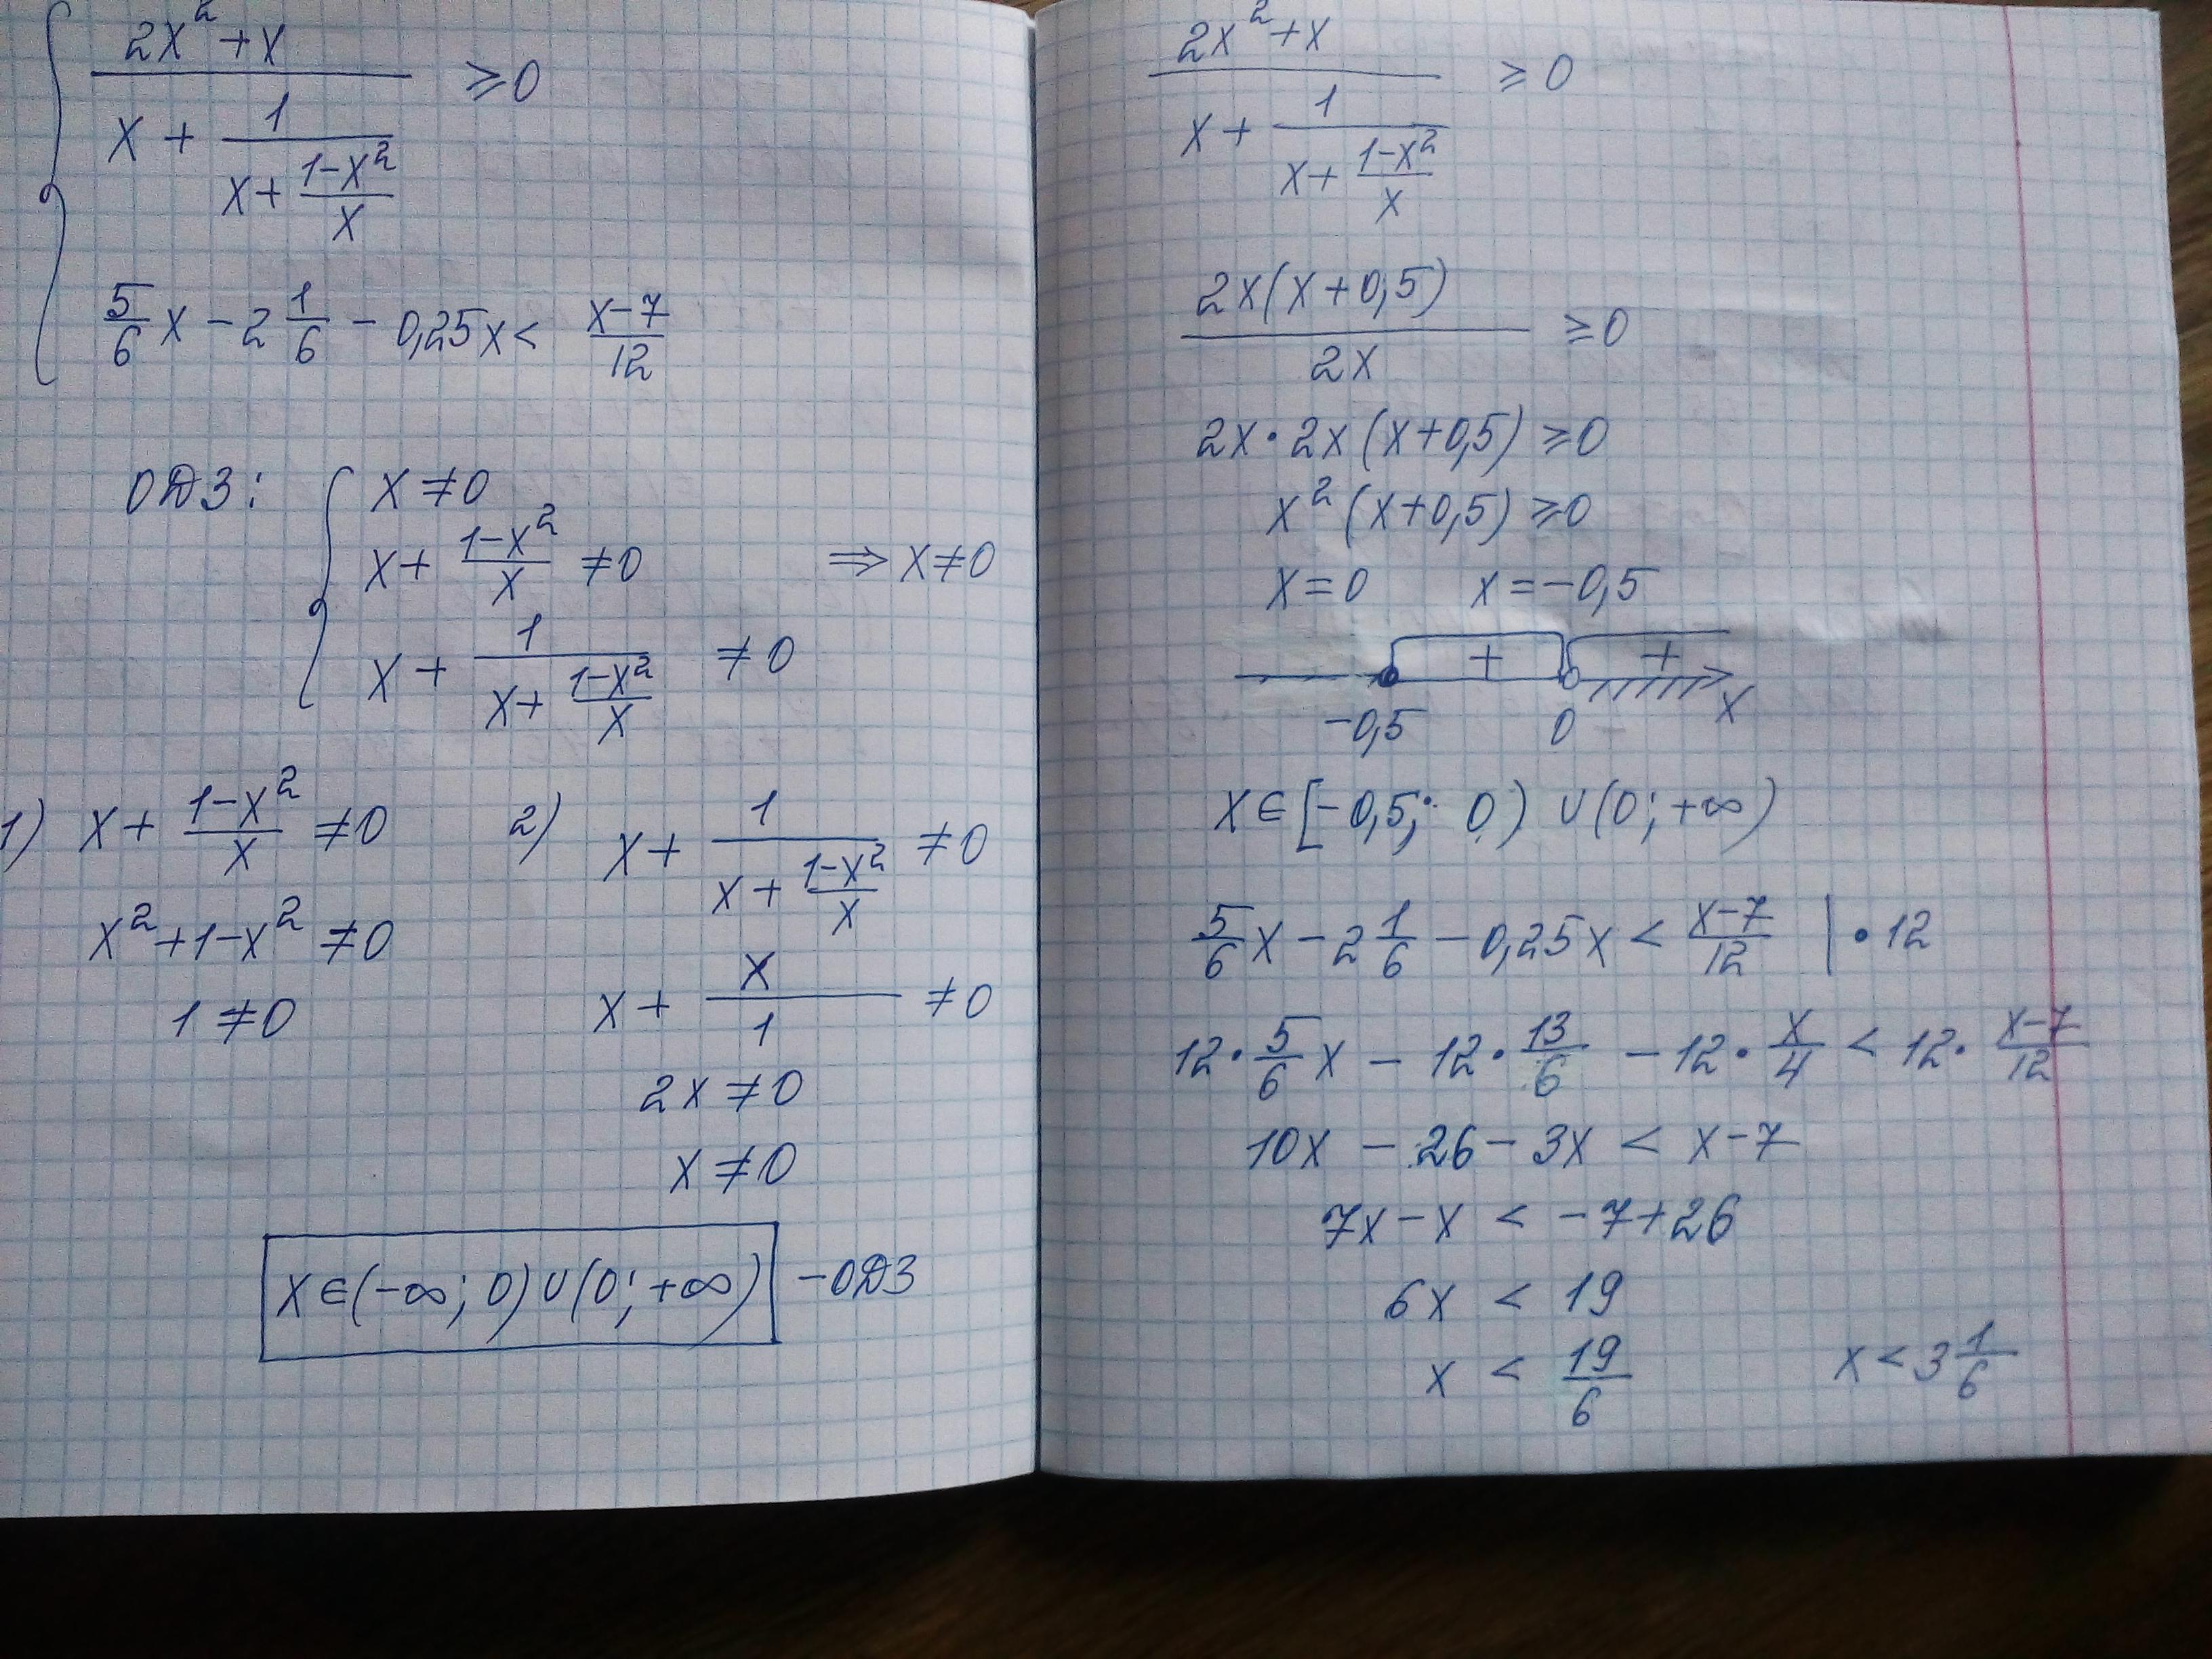 { (2x²+x)/(x + 1/(x + (1-x²)/x)) ≥ 0
5/6 x - 2 1/6 - 0,25x < (x-7)/12
ОДЗ: { x ≠ 0
x + (1-x²)/x ≠ 0 ⇒ x ≠ 0
x + 1/(x + (1-x²)/x) ≠ 0
1) x + (1-x²)/x ≠ 0
x² + 1 - x² ≠ 0
1 ≠ 0
2) x + 1/(x + (1-x²)/x) ≠ 0
x + x/1 ≠ 0
2x ≠ 0
x ≠ 0
x ∈ (-∞; 0) ∪ (0; +∞) - ОДЗ
(2x²+x)/(x + 1/(x + (1-x²)/x)) ≥ 0
2x(x+0,5)/2x ≥ 0
2x · 2x (x+0,5) ≥ 0
x² (x+0,5) ≥ 0
x = 0 x = -0,5
+ +
-0,5 0 x
x ∈ [-0,5; 0) ∪ (0; +∞)
5/6 x - 2 1/6 - 0,25x < (x-7)/12 | · 12
12 · 5/6 x - 12 · 13/6 - 12 · x/4 < 12 · (x-7)/12
10x - 26 - 3x < x - 7
7x - x < -7 + 26
6x < 19
x < 19/6 x < 3 1/6